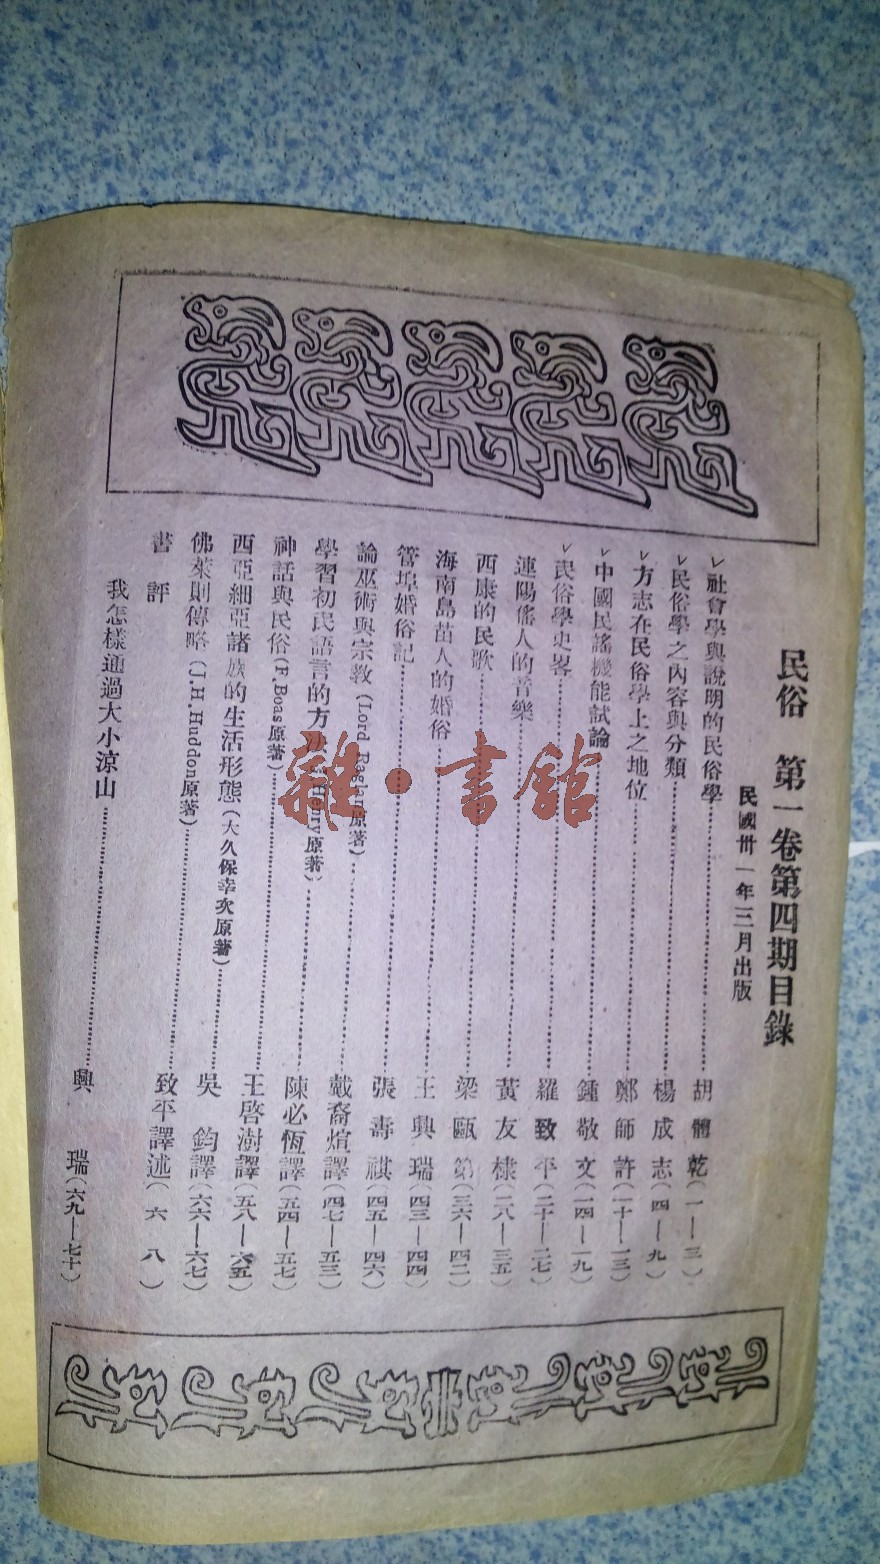 民俗　第一卷第四期目錄
民國卅一年三月出版
✓社會學與說明的民俗學……胡體乾(一—三)
✓民俗學之內容與分類……楊成志(四—九)
✓方志在民俗學上之地位……鄭師許(一十—一三)
✓中國民謠機能試論……鍾敬文(一四—一九)
✓民俗學史畧……羅致平(二十—二七)
連陽傜人的音樂……黃友棣(二八—三五)
西康的民歌……梁甌第(三六—四二)
海南島苗人的婚俗……王興瑞(四三—四四)
管埠婚俗記……張壽祺(四五—四六)
論巫術與宗教(Lord Raglan原著)……戴裔煊譯(四七—五三)
學習初民語言的方法(J. Henry原著)……陳必恆譯(五四—五七)
神話與民俗(F. Boas原著)……王啓澍譯(五八—六五)
西亞細亞諸族的生活形態(大久保幸次原著)……吳　鈞譯(六六—六七)
佛萊則傳略(J.H.Huddon原著)……致平譯述(六　八)
書　評
我怎樣通過大小涼山……興　瑞(六九—七十)
雜·書館